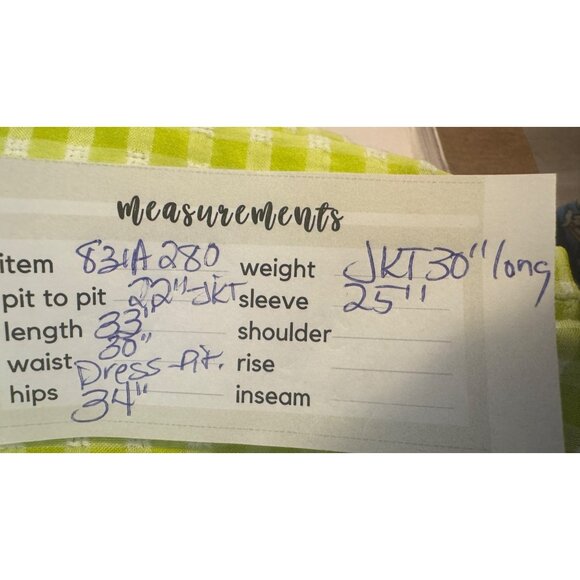 measurements
item 831A 280 weight JKT 30" long
pit to pit 22" JKT sleeve 25"
length 33" shoulder
38"
waist Dress pit. rise
hips 34" inseam